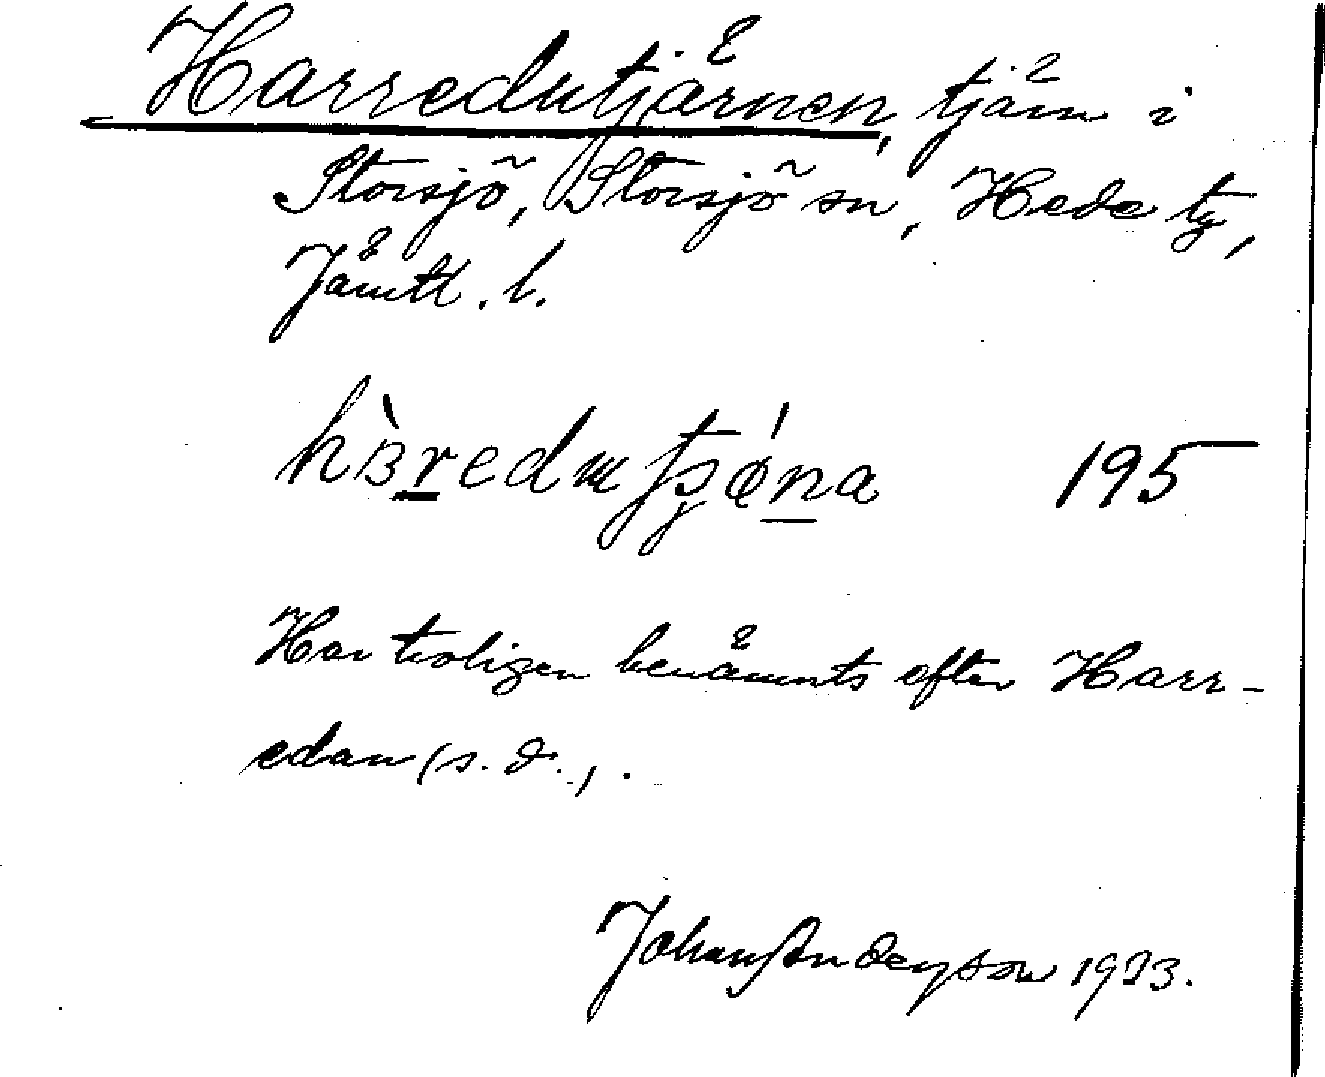 Harredutjärnen, tjärn i
Storsjö, Storsjö sn, Hede tg,
Jämtl. l.
195
Har troligen benämnts efter Harr-
edan (s. d.).
Johan Andersson 1933.